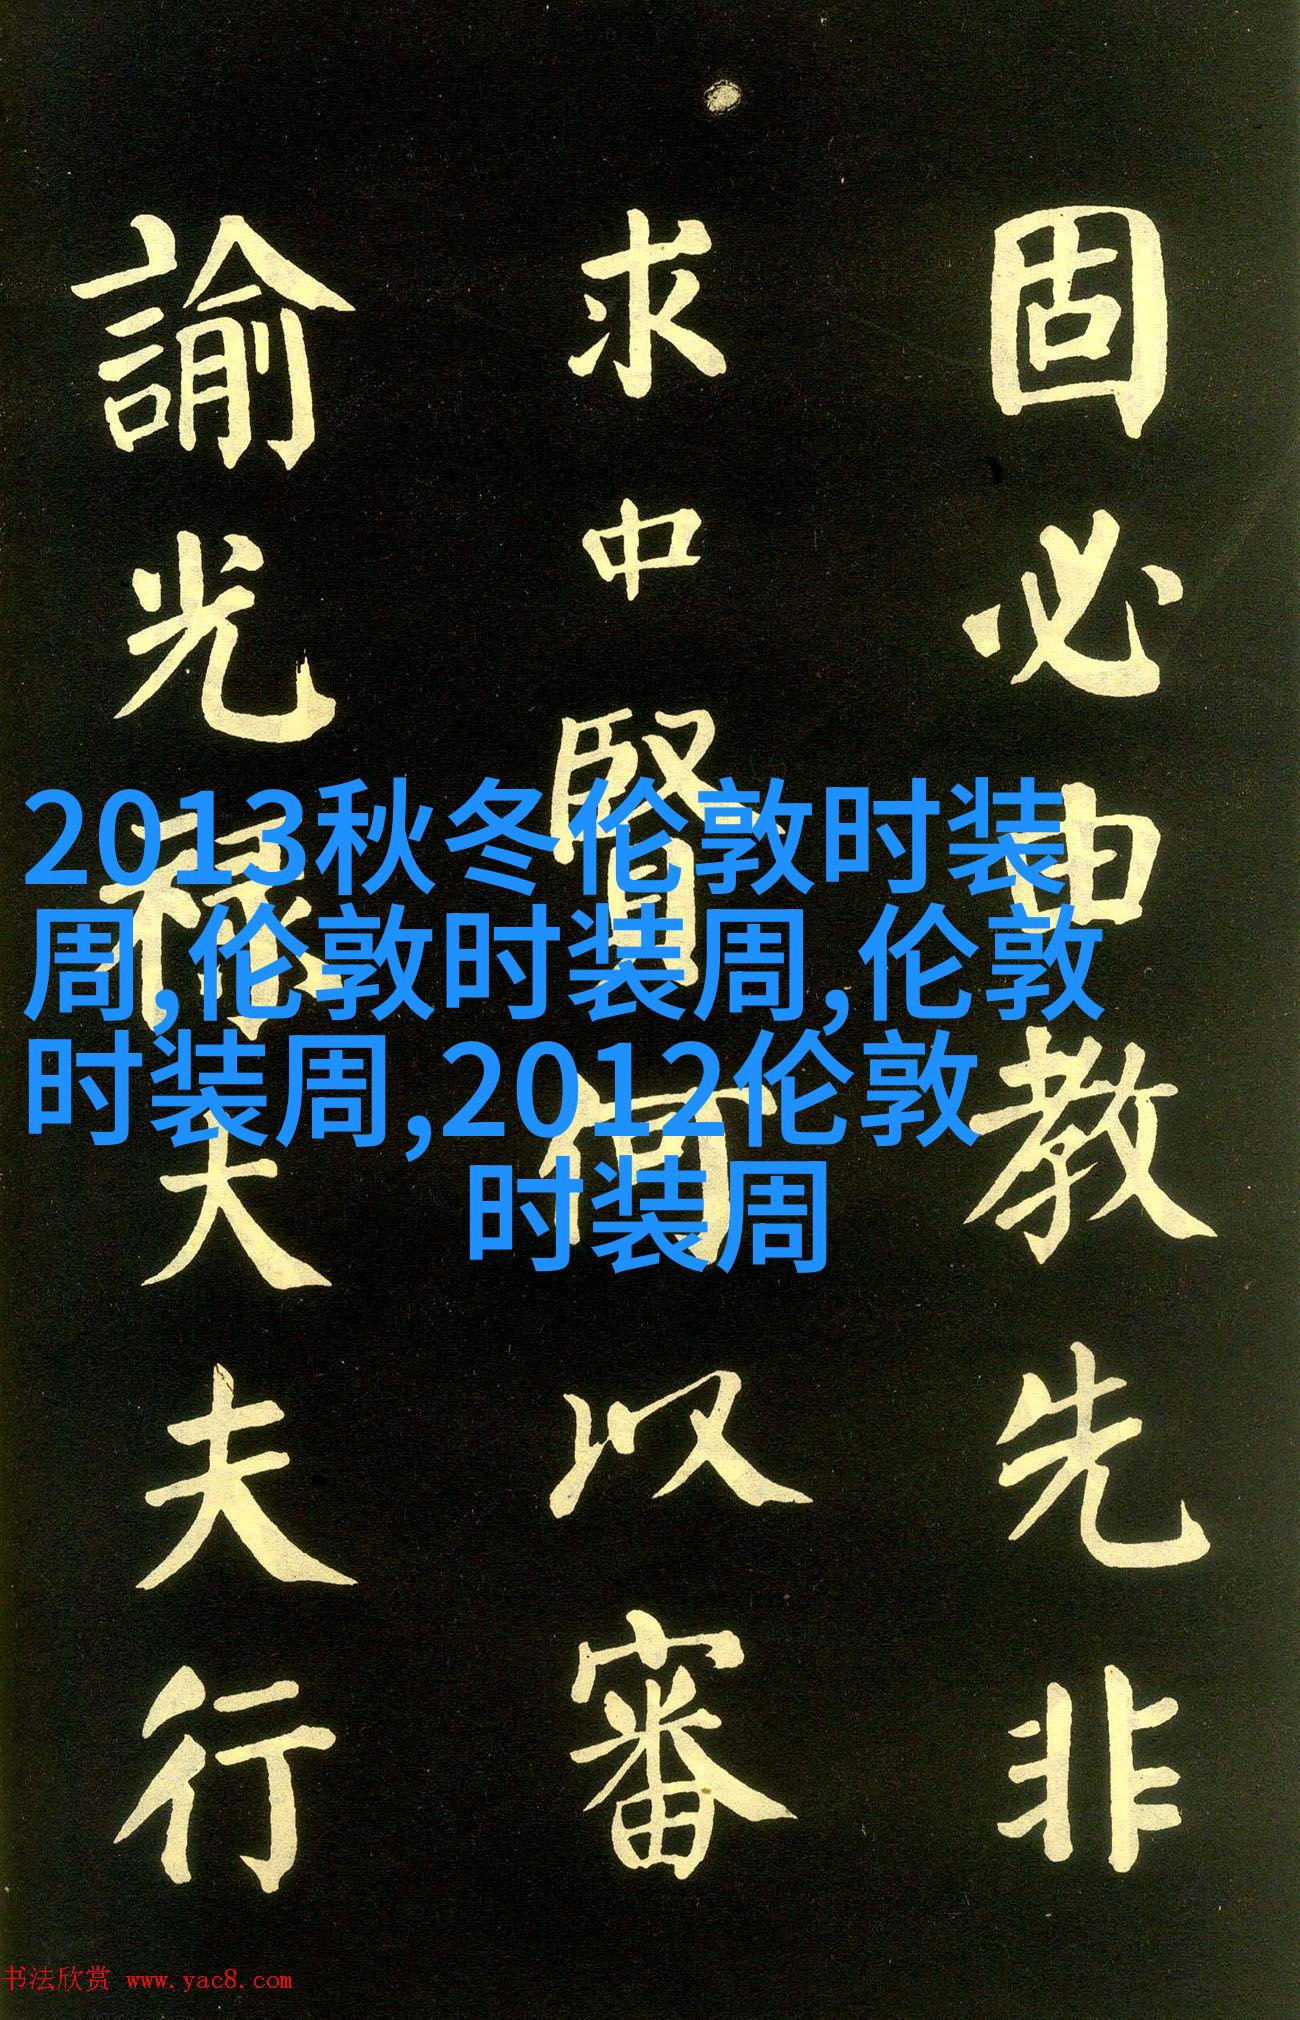 固必由教先非
求中賢何以審
諭光祿大夫行
2013秋冬伦敦时装
周,伦敦时装周,伦敦
时装周,2012伦敦
时装周
书法欣赏 www.yac8.com